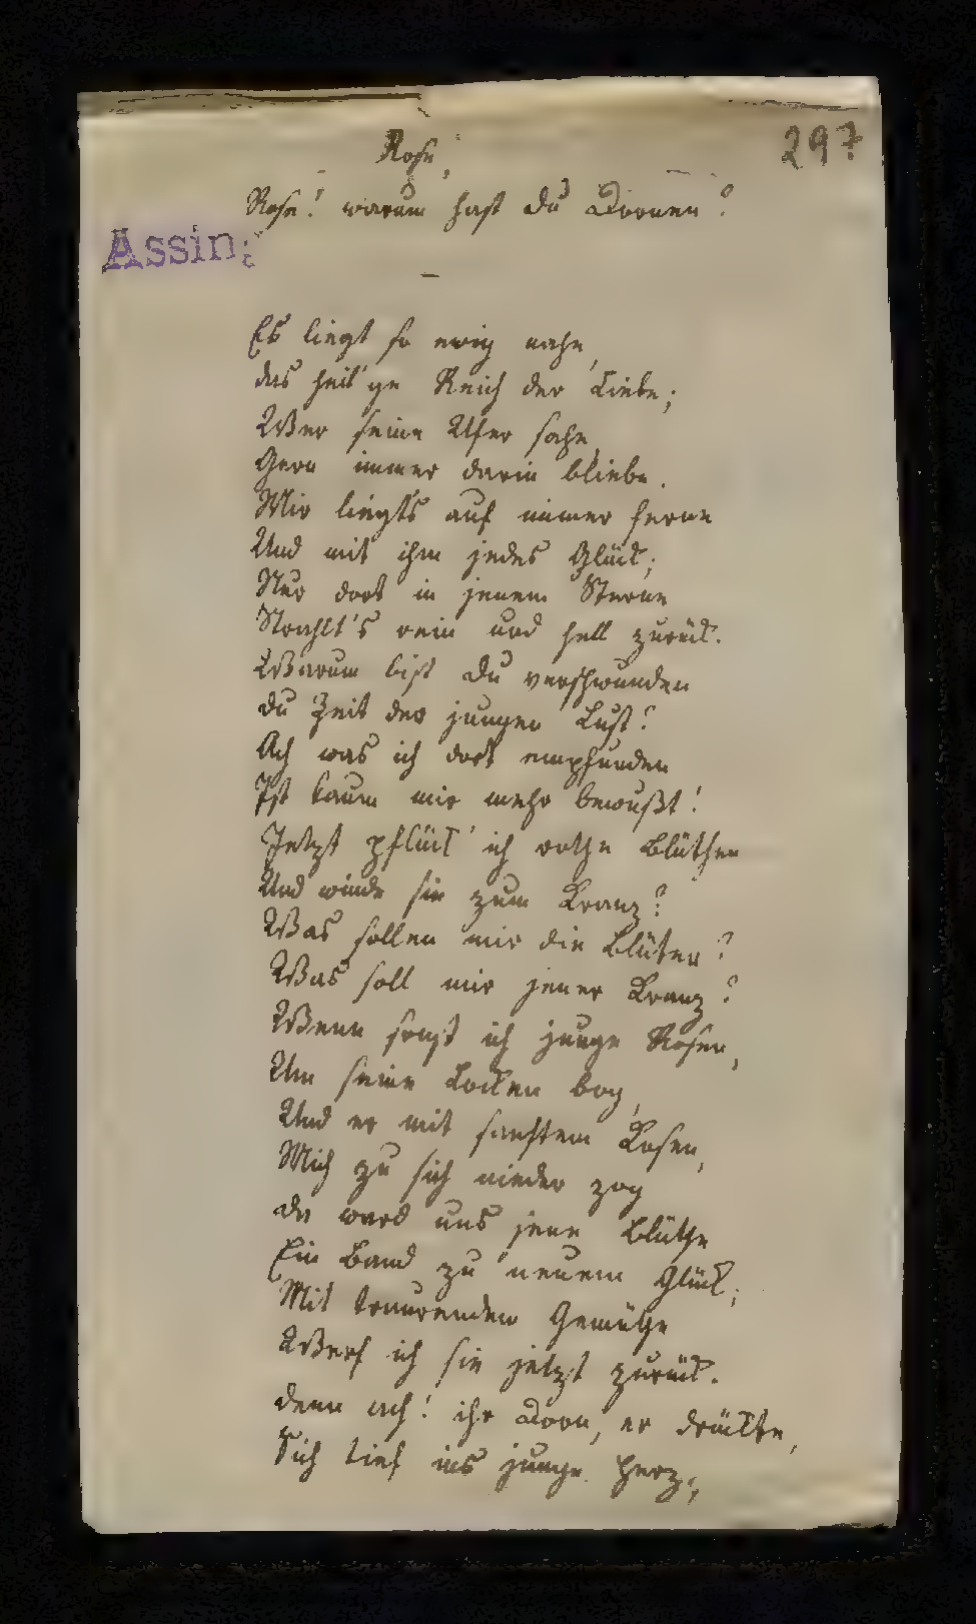 297
Rose,
Rose! warum hast du Dornen?
Assing
Es liegt so ewig nahe,
das heil'ge Reich der Liebe;
Wer seine Ufer sahe,
Gern immer darin bliebe.
Mir liegt's auf immer ferne
Und mit ihm jedes Glück;
Nur dort in jenem Sterne
Strahlt's rein und hell zurück.
Warum bist du verschwunden
du Zeit der jungen Lust?
Ach was ich dort empfunden
Ist kaum mir mehr bewußt!
Jetzt pflück' ich rothe Blüthen
Und winde sie zum Kranz?
Was sollen mir die Blüten?
Was soll mir jener Kranz?
Wenn sonst ich junge Rosen,
Um seine Locken bog,
Und er mit sanftem Kosen,
Mich zu sich nieder zog
da ward uns jene Blüthe
Ein Band zu neuem Glück;
Mit trauerndem Gemüthe
Werf ich sie jetzt zurück.
denn ach! ihr Dorn, er drückte,
Sich tief ins junge Herz;